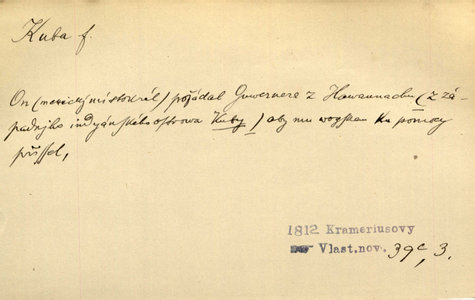 Kuba f.
On (mexický místokrál) požádal Guwernera z Hawannachu (z zá-
padnjho indyánského ostrowa Kuby) aby mu wogskau ku pomocy
přissel,
1812 Krameriusovy
Vlast.nov. 39c, 3.